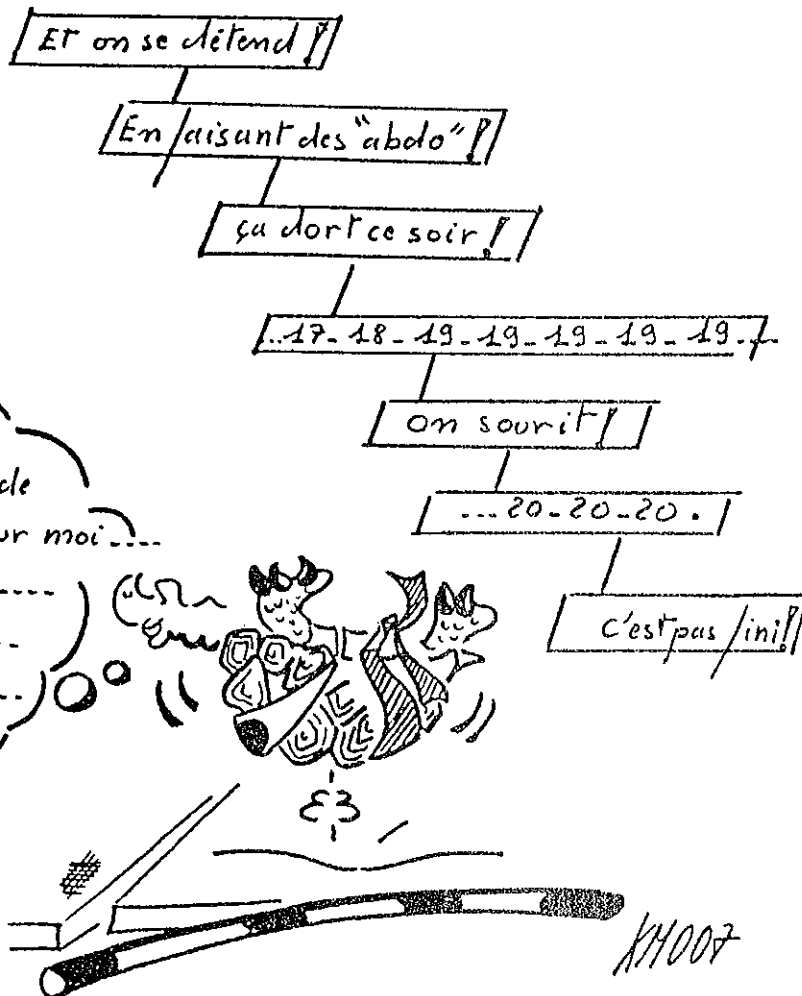 Et on se détend !
En faisant des "abdo" !
ça dort ce soir !
...17-18-19-19-19-19-19....
on sourit !
...20-20-20.
c'est pas fini !!
de
ur moi.....
.....
..
...
KM007